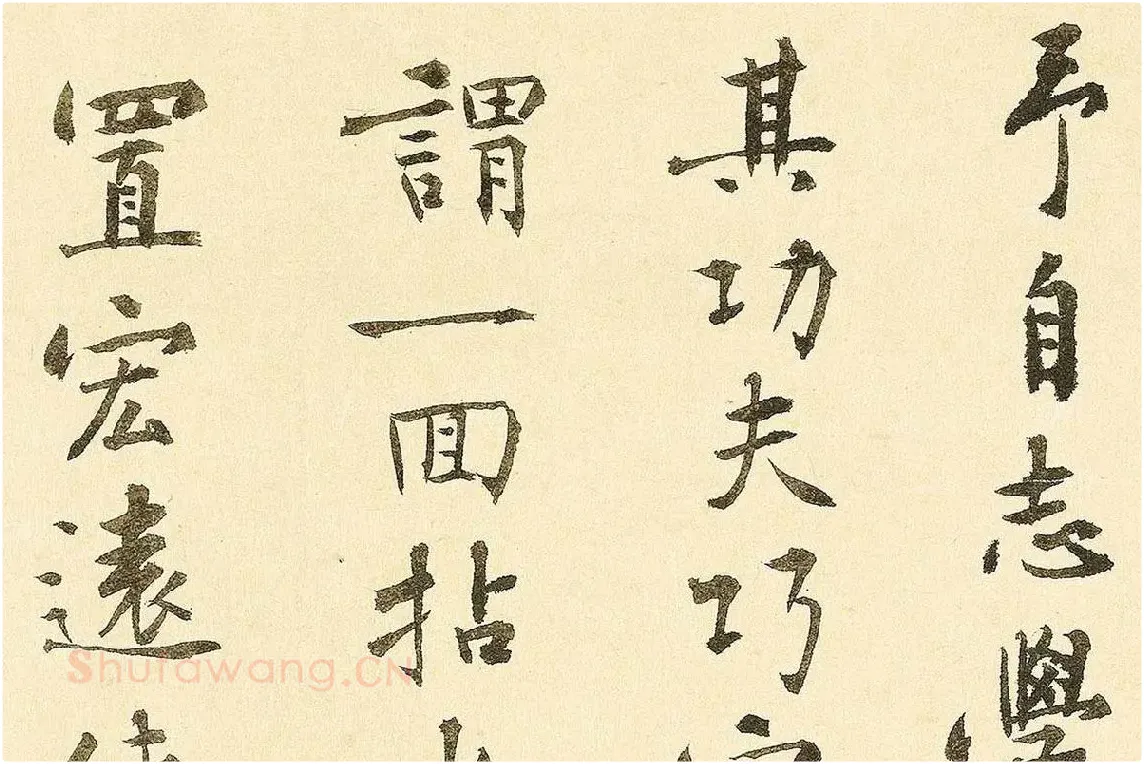 予自志學
其功夫巧
謂一面拈
置宏遠
Shufawang.CN